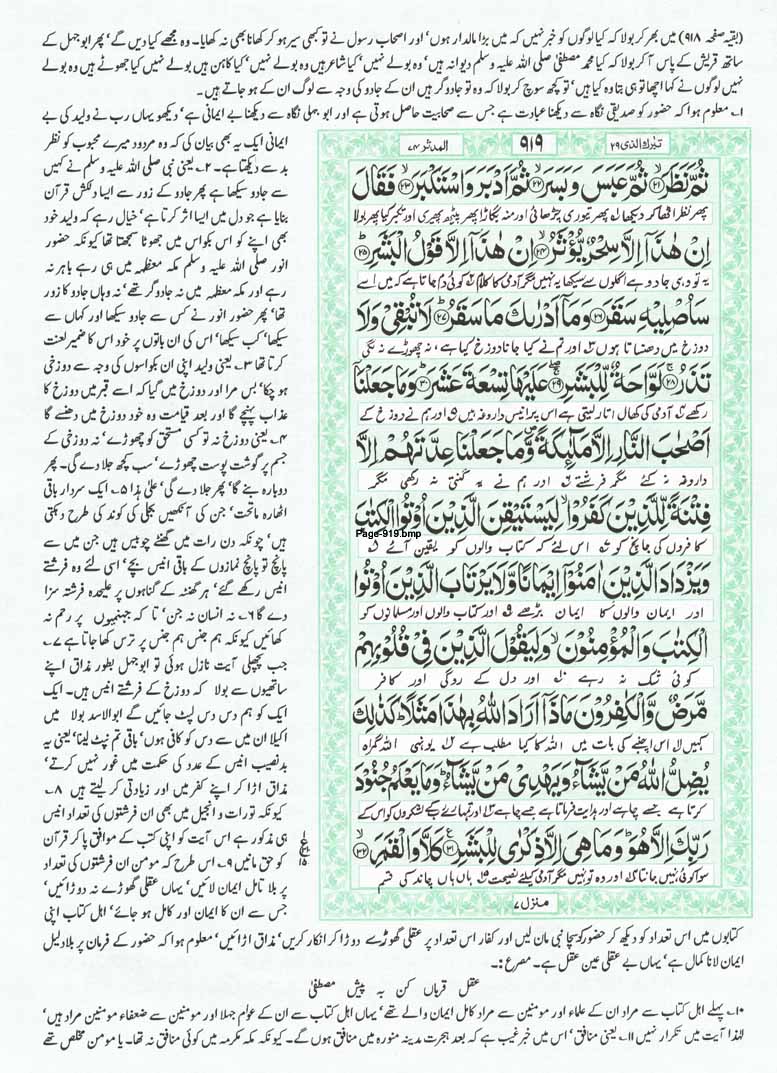 (بقیہ صفحہ ۹۱۸) میں بھر کر بولا کہ کیا لوگوں کو خبر نہیں کہ میں بڑا مالدار ہوں‘ اور اصحاب رسول نے تو کبھی سیر ہو کر کھانا بھی نہ کھایا۔ وہ مجھے کیا دیں گے‘ پھر ابوجہل کے
ساتھ قریش کے پاس آ کر بولا کہ کیا محمد مصطفیٰ صلی اللہ علیہ وسلم دیوانہ ہیں‘ وہ بولے نہیں‘ کیا شاعر ہیں وہ بولے نہیں‘ کیا کاہن ہیں بولے نہیں کیا جھوٹے ہیں وہ بولے
نہیں لوگوں نے کہا اچھا تو ہی بتا وہ کیا ہیں‘ تو کچھ سوچ کر بولا کہ وہ تو جادوگر ہیں ان کے جادو کی وجہ سے لوگ ان کے ہو جاتے ہیں۔
۱۔ معلوم ہوا کہ حضور کو صدیقی نگاہ سے دیکھنا عبادت ہے جس سے صحابیت حاصل ہوتی ہے اور ابو جہلی نگاہ سے دیکھنا بے ایمانی ہے‘ دیکھو یہاں رب نے ولید کی بے
تبٰرک الذی ۲۹
۹۱۹
المدثر ۷۴
ثُمَّ نَظَرَ ۲۱ ثُمَّ عَبَسَ وَبَسَرَ ۲۲ ثُمَّ اَدْبَرَ وَاسْتَكْبَرَ ۲۳ فَقَالَ
پھر نظر اٹھا کر دیکھا پھر تیوری چڑھائی اور منہ بگاڑا پھر پیٹھ پھیری اور تکبر کیا پھر بولا
اِنْ هٰذَاۤ اِلَّا سِحْرٌ یُّؤْثَرُ ۲۴ اِنْ هٰذَاۤ اِلَّا قَوْلُ الْبَشَرِ ۲۵
یہ تو وہی جادو ہے اگلوں سے سیکھا یہ نہیں مگر آدمی کا کلام کوئی دم جاتا ہے کہ میں اسے
سَاُصْلِیْهِ سَقَرَ ۲۶ وَمَاۤ اَدْرٰىكَ مَا سَقَرُ ۲۷ لَا تُبْقِیْ وَلَا
دوزخ میں دھنساتا ہوں اور تم نے کیا جانا دوزخ کیا ہے‘ نہ چھوڑے نہ لگی
تَذَرُ ۲۸ لَوَّاحَةٌ لِّلْبَشَرِ ۲۹ عَلَیْهَا تِسْعَةَ عَشَرَ ۳۰ وَمَا جَعَلْنَاۤ
رکھے آدمی کی کھال اتار لیتی ہے اس پر انیس داروغہ ہیں اور ہم نے دوزخ کے
اَصْحٰبَ النَّارِ اِلَّا مَلٰٓئِكَةً وَّمَا جَعَلْنَا عِدَّتَهُمْ اِلَّا
داروغہ نہ کئے مگر فرشتے اور ہم نے یہ گنتی نہ رکھی مگر
فِتْنَةً لِّلَّذِیْنَ كَفَرُوْا لِیَسْتَیْقِنَ الَّذِیْنَ اُوْتُوا الْكِتٰبَ
Page-919.bmp
کافروں کی جانچ کو اس لئے کہ کتاب والوں کو یقین آئے
وَیَزْدَادَ الَّذِیْنَ اٰمَنُوْۤا اِیْمَانًا وَّلَا یَرْتَابَ الَّذِیْنَ اُوْتُوا
اور ایمان والوں کا ایمان بڑھے اور کتاب والوں اور مسلمانوں کو
الْكِتٰبَ وَالْمُؤْمِنُوْنَ وَلِیَقُوْلَ الَّذِیْنَ فِیْ قُلُوْبِهِمْ
کوئی شک نہ رہے اور دل کے روگی اور کافر
مَّرَضٌ وَّالْكٰفِرُوْنَ مَاذَاۤ اَرَادَ اللّٰهُ بِهٰذَا مَثَلًا كَذٰلِكَ
کہیں اس اچنبھے کی بات میں اللہ کا کیا مطلب ہے یونہی اللہ گمراہ
یُضِلُّ اللّٰهُ مَنْ یَّشَآءُ وَیَهْدِیْ مَنْ یَّشَآءُ وَمَا یَعْلَمُ جُنُوْدَ
کرتا ہے جسے چاہے اور ہدایت فرماتا ہے جسے چاہے اور تمہارے رب کے لشکروں کو اس کے
رَبِّكَ اِلَّا هُوَ وَمَا هِیَ اِلَّا ذِكْرٰى لِلْبَشَرِ ۳۱ كَلَّا وَالْقَمَرِ ۳۲
سوا کوئی نہیں جانتا اور وہ تو نہیں مگر آدمی کیلئے نصیحت ہاں ہاں چاند کی قسم
منزل ۷
ایمانی ایک یہ بھی بیان کی کہ وہ مردود میرے محبوب کو نظر
بد سے دیکھتا ہے۔ ۲۔ یعنی نبی صلی اللہ علیہ وسلم نے کہیں
سے جادو سیکھا ہے پھر جادو کے زور سے ایسا دلکش قرآن
بنایا ہے جو دل میں ایسا اثر کرتا ہے‘ خیال رہے کہ ولید خود
بھی اپنے کو اس بکواس میں جھوٹا سمجھتا تھا کیونکہ حضور
انور صلی اللہ علیہ وسلم مکہ معظمہ میں ہی رہے باہر نہ
رہے اور مکہ معظمہ میں نہ جادوگر تھے‘ نہ وہاں جادو کا زور
تھا‘ پھر حضور انور نے کس سے جادو سیکھا اور کہاں سے
سیکھا‘ کب سیکھا‘ اس کی ان باتوں پر خود اس کا ضمیر لعنت
کرتا تھا ۳۔ یعنی ولید اپنی ان بکواسوں کی وجہ سے دوزخی
ہو چکا‘ بس مرا اور دوزخ میں گیا کہ اسے قبر میں دوزخ کا
عذاب پہنچے گا اور بعد قیامت وہ خود دوزخ میں دھنسے گا
۴۔ یعنی دوزخ نہ تو کسی مستحق کو چھوڑے‘ نہ دوزخی کے
جسم پر گوشت پوست چھوڑے‘ سب کچھ جلا دے گی۔ پھر
دوبارہ بنے گا‘ پھر جلا دے گی‘ علیٰ ہذا ۵۔ ایک سردار باقی
اٹھارہ ماتحت‘ جن کی آنکھیں بجلی کی کوند کی طرح دہکتی
ہیں‘ چونکہ دن رات میں گھنٹے چوبیس ہیں جن میں سے
پانچ تو پانچ نمازوں کے باقی انیس بچے‘ اسی لئے وہ فرشتے
انیس رکھے گئے‘ ہر گھنٹہ کے گناہوں پر علیحدہ فرشتہ سزا
دے گا ۶۔ نہ انسان نہ جن‘ تا کہ جہنمیوں پر رحم نہ
کھائیں کیونکہ ہم جنس ہم جنس پر ترس کھا جاتا ہے ۷۔
جب پچھلی آیت نازل ہوئی تو ابو جہل بطور مذاق اپنے
ساتھیوں سے بولا کہ دوزخ کے فرشتے انیس ہیں۔ ایک
ایک کو ہم دس دس لپٹ جائیں گے ابوالاسد بولا میں
اکیلا ان میں سے دس کو کافی ہوں‘ باقی تم نپٹ لینا‘ یعنی یہ
بدنصیب انیس کے عدد کی حکمت میں غور نہیں کرتے‘
مذاق اڑا کر اپنے کفر میں اور زیادتی کر لیتے ہیں ۸۔
کیونکہ تورات و انجیل میں بھی ان فرشتوں کی تعداد انیس
ہی مذکور ہے اس آیت کو اپنی کتب کے موافق پا کر قرآن
کو حق مانیں ۹۔ اس طرح کہ مومن ان فرشتوں کی تعداد
پر بلا تامل ایمان لائیں‘ یہاں عقلی گھوڑے نہ دوڑائیں‘
جس سے ان کا ایمان اور کامل ہو جائے‘ اہل کتاب اپنی
ع
۱۵
کتابوں میں اس تعداد کو دیکھ کر حضور کو سچا نبی مان لیں اور کفار اس تعداد پر عقلی گھوڑے دوڑا کر انکار کریں‘ مذاق اڑائیں‘ معلوم ہوا کہ حضور کے فرمان پر بلا دلیل
ایمان لانا کمال ہے‘ یہاں بے عقلی عین عقل ہے۔ مصرع :۔
عقل قرباں کن بہ پیش مصطفیٰ
۱۰۔ پہلے اہل کتاب سے مراد ان کے علماء اور مومنین سے مراد کامل ایمان والے تھے‘ یہاں اہل کتاب سے ان کے عوام جہلا اور مومنین سے ضعفاء مومنین مراد ہیں‘
لہٰذا آیت میں تکرار نہیں ۱۱۔ یعنی منافق‘ اس میں خبر غیب ہے کہ بعد ہجرت مدینہ منورہ میں منافق ہوں گے۔ کیونکہ مکہ مکرمہ میں کوئی منافق نہ تھا۔ یا مومن مخلص تھے